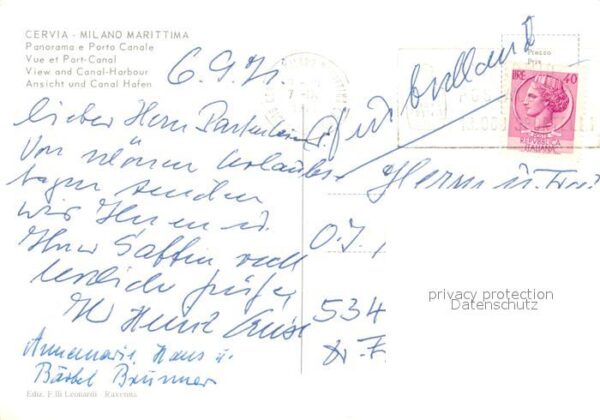 CERVIA - MILANO MARITTIMA
Panorama e Porto Canale
Vue et Port-Canal
View and Canal-Harbour
Ansicht und Canal Hafen
6.9.71
Prezzo
Prix
LIRE 40
REPVBBLICA
ITALIANA
Lieber Herr
Von schönen Urlaubs-
tagen senden
wir Ihnen u.
Ihrer Gattin recht
herzliche Grüße
Ihr Heinz
Annemarie, Hans u.
Bärbel Brunner
Herrn u. Frau
534
privacy protection
Datenschutz
Ediz. F.lli Leonardi - Ravenna